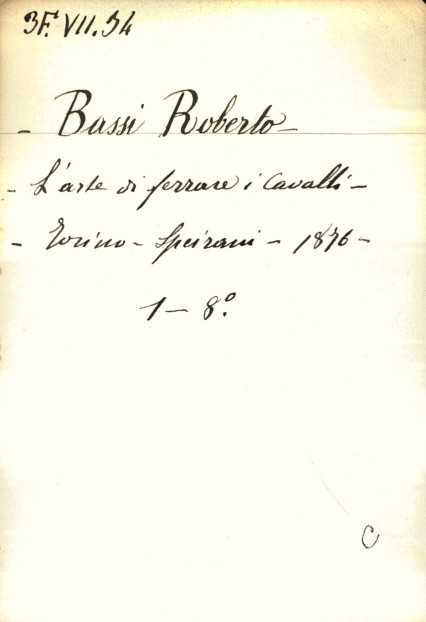 3F. VII. 54
- Bassi Roberto -
- L'arte di ferrare i Cavalli -
- Torino - Speirani - 1876 -
1 - 8.º
C